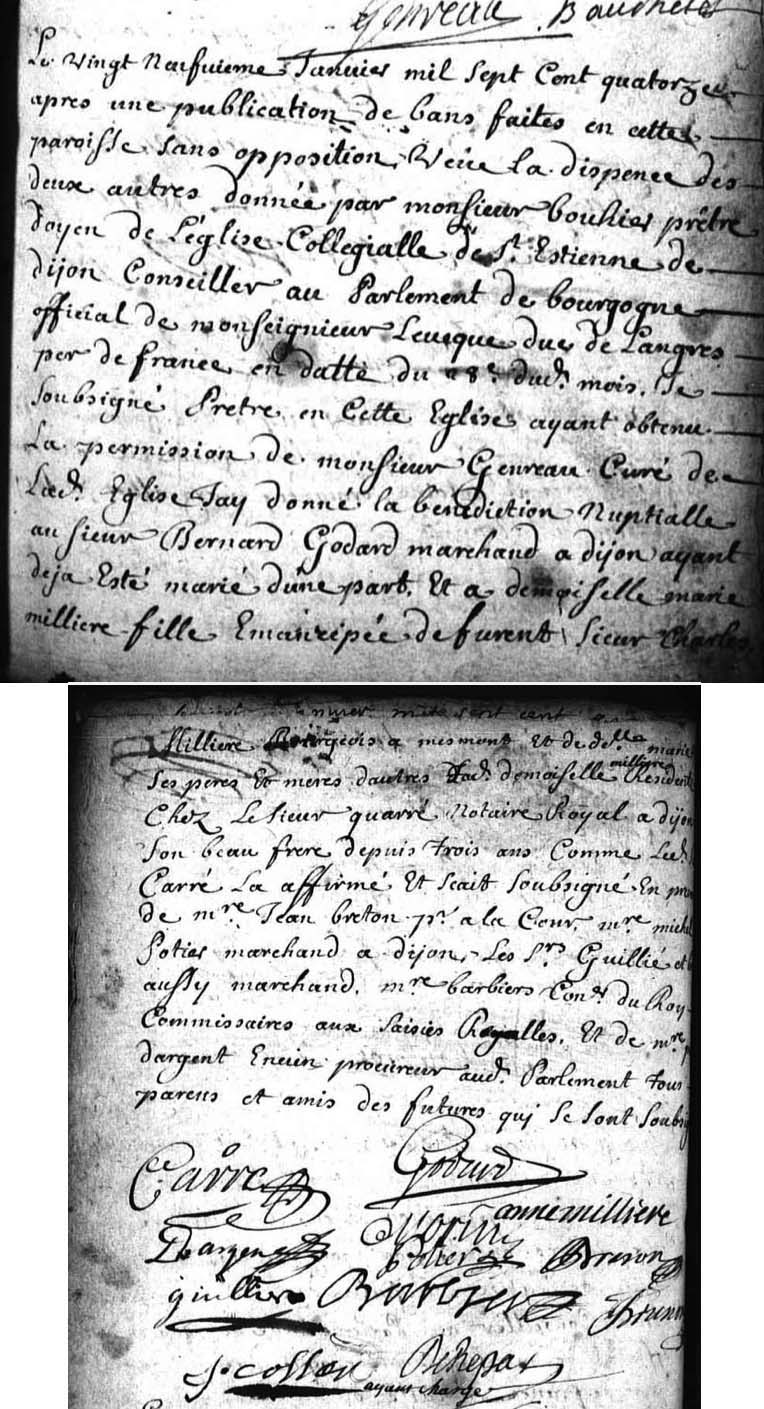 Genreau. Bauthelet
Le vingt Neufuieme Januier mil sept Cent quatorze
apres une publication de bans faites en cette
paroisse sans opposition, Veüe la dispence des
deux autres donnée par monsieur bouhier prêtre
doyen de L'église Collegialle de St. Estienne de
dijon Conseiller au Parlement de bourgogne
official de monseignieur Leueque duc de Langres
per de france en datte du 28e. dud. mois, Je
soubsigné Pretre en Cette Eglise ayant obtenu
La permission de monsieur Genreau Curé de
Lad. Eglise Jay donné la benediction Nuptialle
au sieur Bernard Godard marchand a dijon ayant
deja Esté marié dune part, Et a demoiselle marie
milliere fille Emanzipée de furent sieur Charles
Milliere Bourgeois a mesmont et de delle. marie
ses peres Et meres dautres Lad. demoiselle milliere Residente
Chez Le sieur quarré Notaire Royal a dijon
son beau frere depuis trois ans Comme Led.
Carré La affirmé Et scait soubsigné En pre
de mre. Jean breton pr. a la Cour, mre. michel
Potier marchand a dijon, Les Srs Guillié et
aussy marchand, mre barbier Coner du Roy
Commissaires aux saisies Royalles, Et de mre
dargent Encien procureur aud. Parlement tous
parens et amis des futures qui se sont soubsig
Carré Godard
anne milliere
Morin
Dargent Potier Breton
guillier Barbier Brun
J. collon
ayant charge